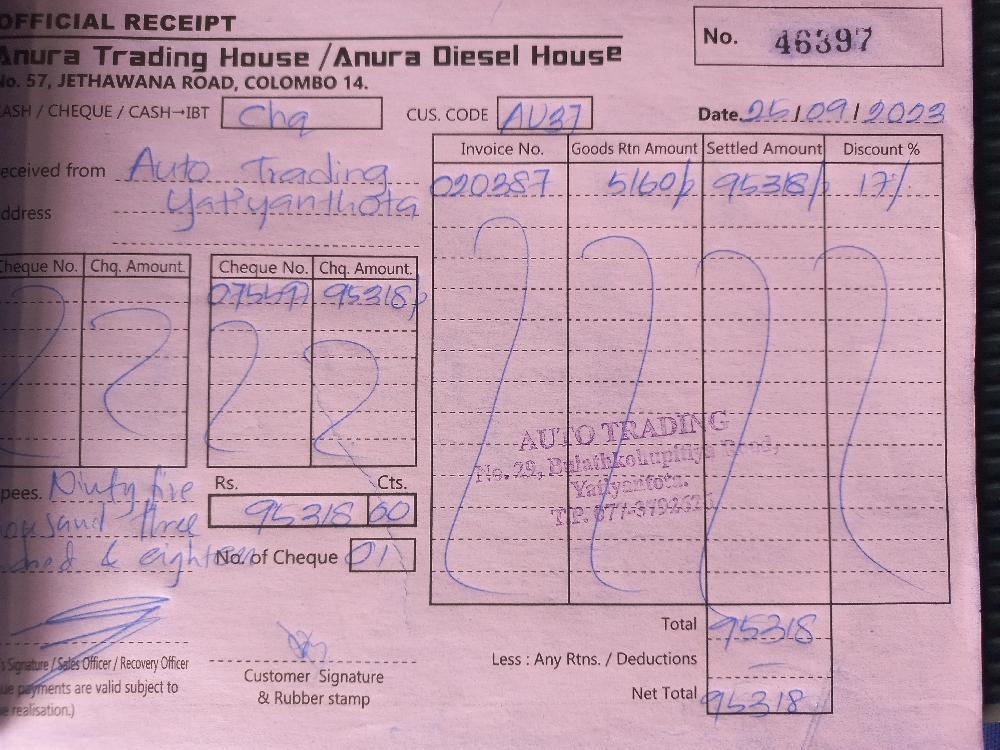 OFFICIAL RECEIPT
No. 46397
Anura Trading House / Anura Diesel House
No. 57, JETHAWANA ROAD, COLOMBO 14.
CASH / CHEQUE / CASH→IBT Chq CUS. CODE AU37 Date. 25/09/2023
Received from Auto Trading
Address Yatiyanthota
Invoice No. Goods Rtn Amount Settled Amount Discount %
020387 5160/- 95318/- 17%
Cheque No. Chq. Amount. Cheque No. Chq. Amount.
95318/-
AUTO TRADING
No. 29, Bulathkohupitiya Road,
Yatiyantota.
T.P. 077-
Rupees. Ninty five
thousand three
hundred & eighteen
Rs. Cts.
95318 00
No. of Cheque 01
Total 95318
Less : Any Rtns. / Deductions —
Net Total 95318
's Signature / Sales Officer / Recovery Officer
payments are valid subject to
realisation.)
Customer Signature
& Rubber stamp